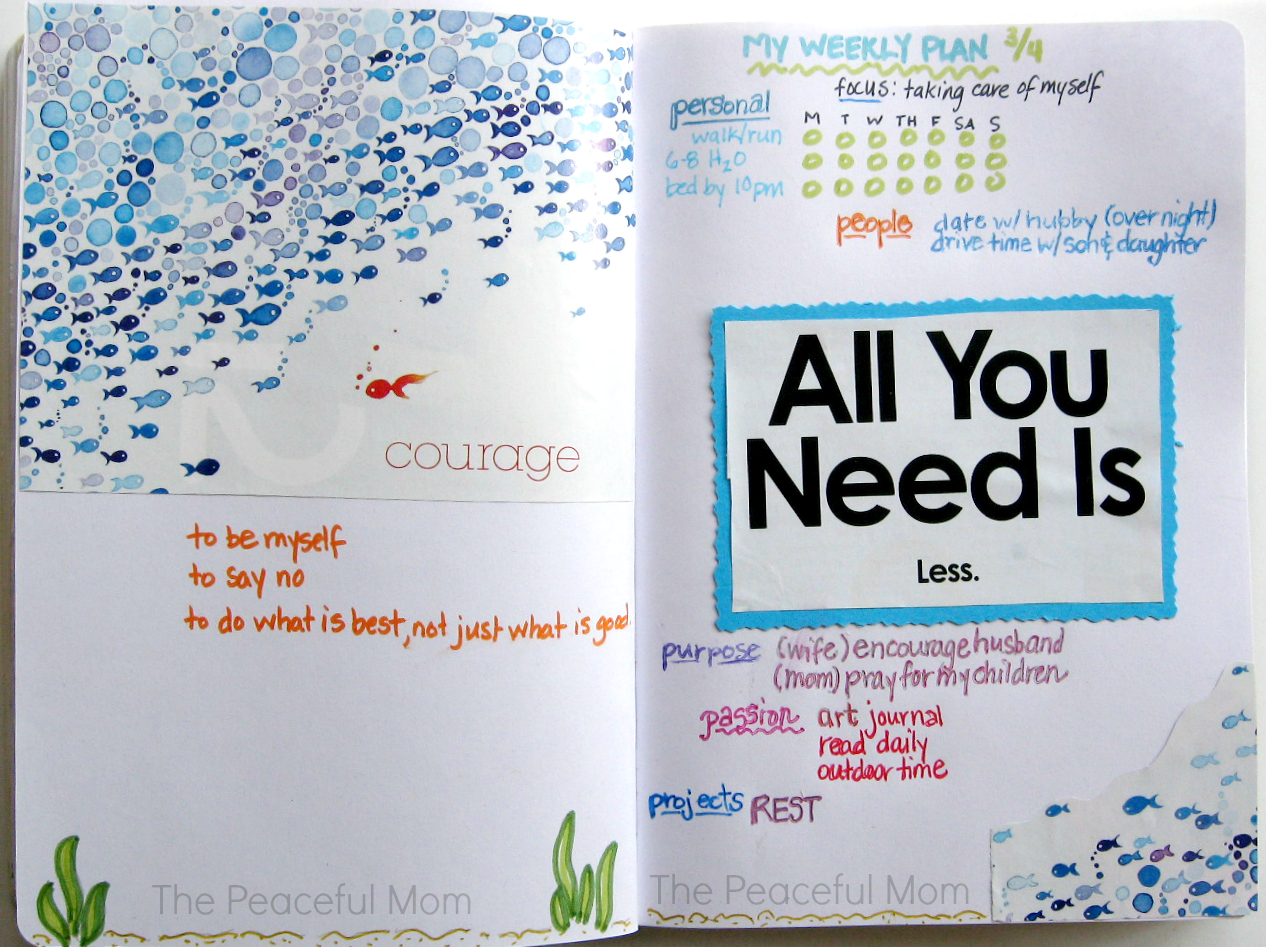 courage
to be myself
to say no
to do what is best, not just what is good.
The Peaceful Mom
MY WEEKLY PLAN 3/4
focus: taking care of myself
personal
M T W TH F SA S
walk/run
6-8 H2O
bed by 10pm
people date w/ hubby (over night)
drive time w/ son & daughter
All You
Need Is
Less.
purpose (wife) encourage husband
(mom) pray for my children
passion art journal
read daily
outdoor time
projects REST
The Peaceful Mom